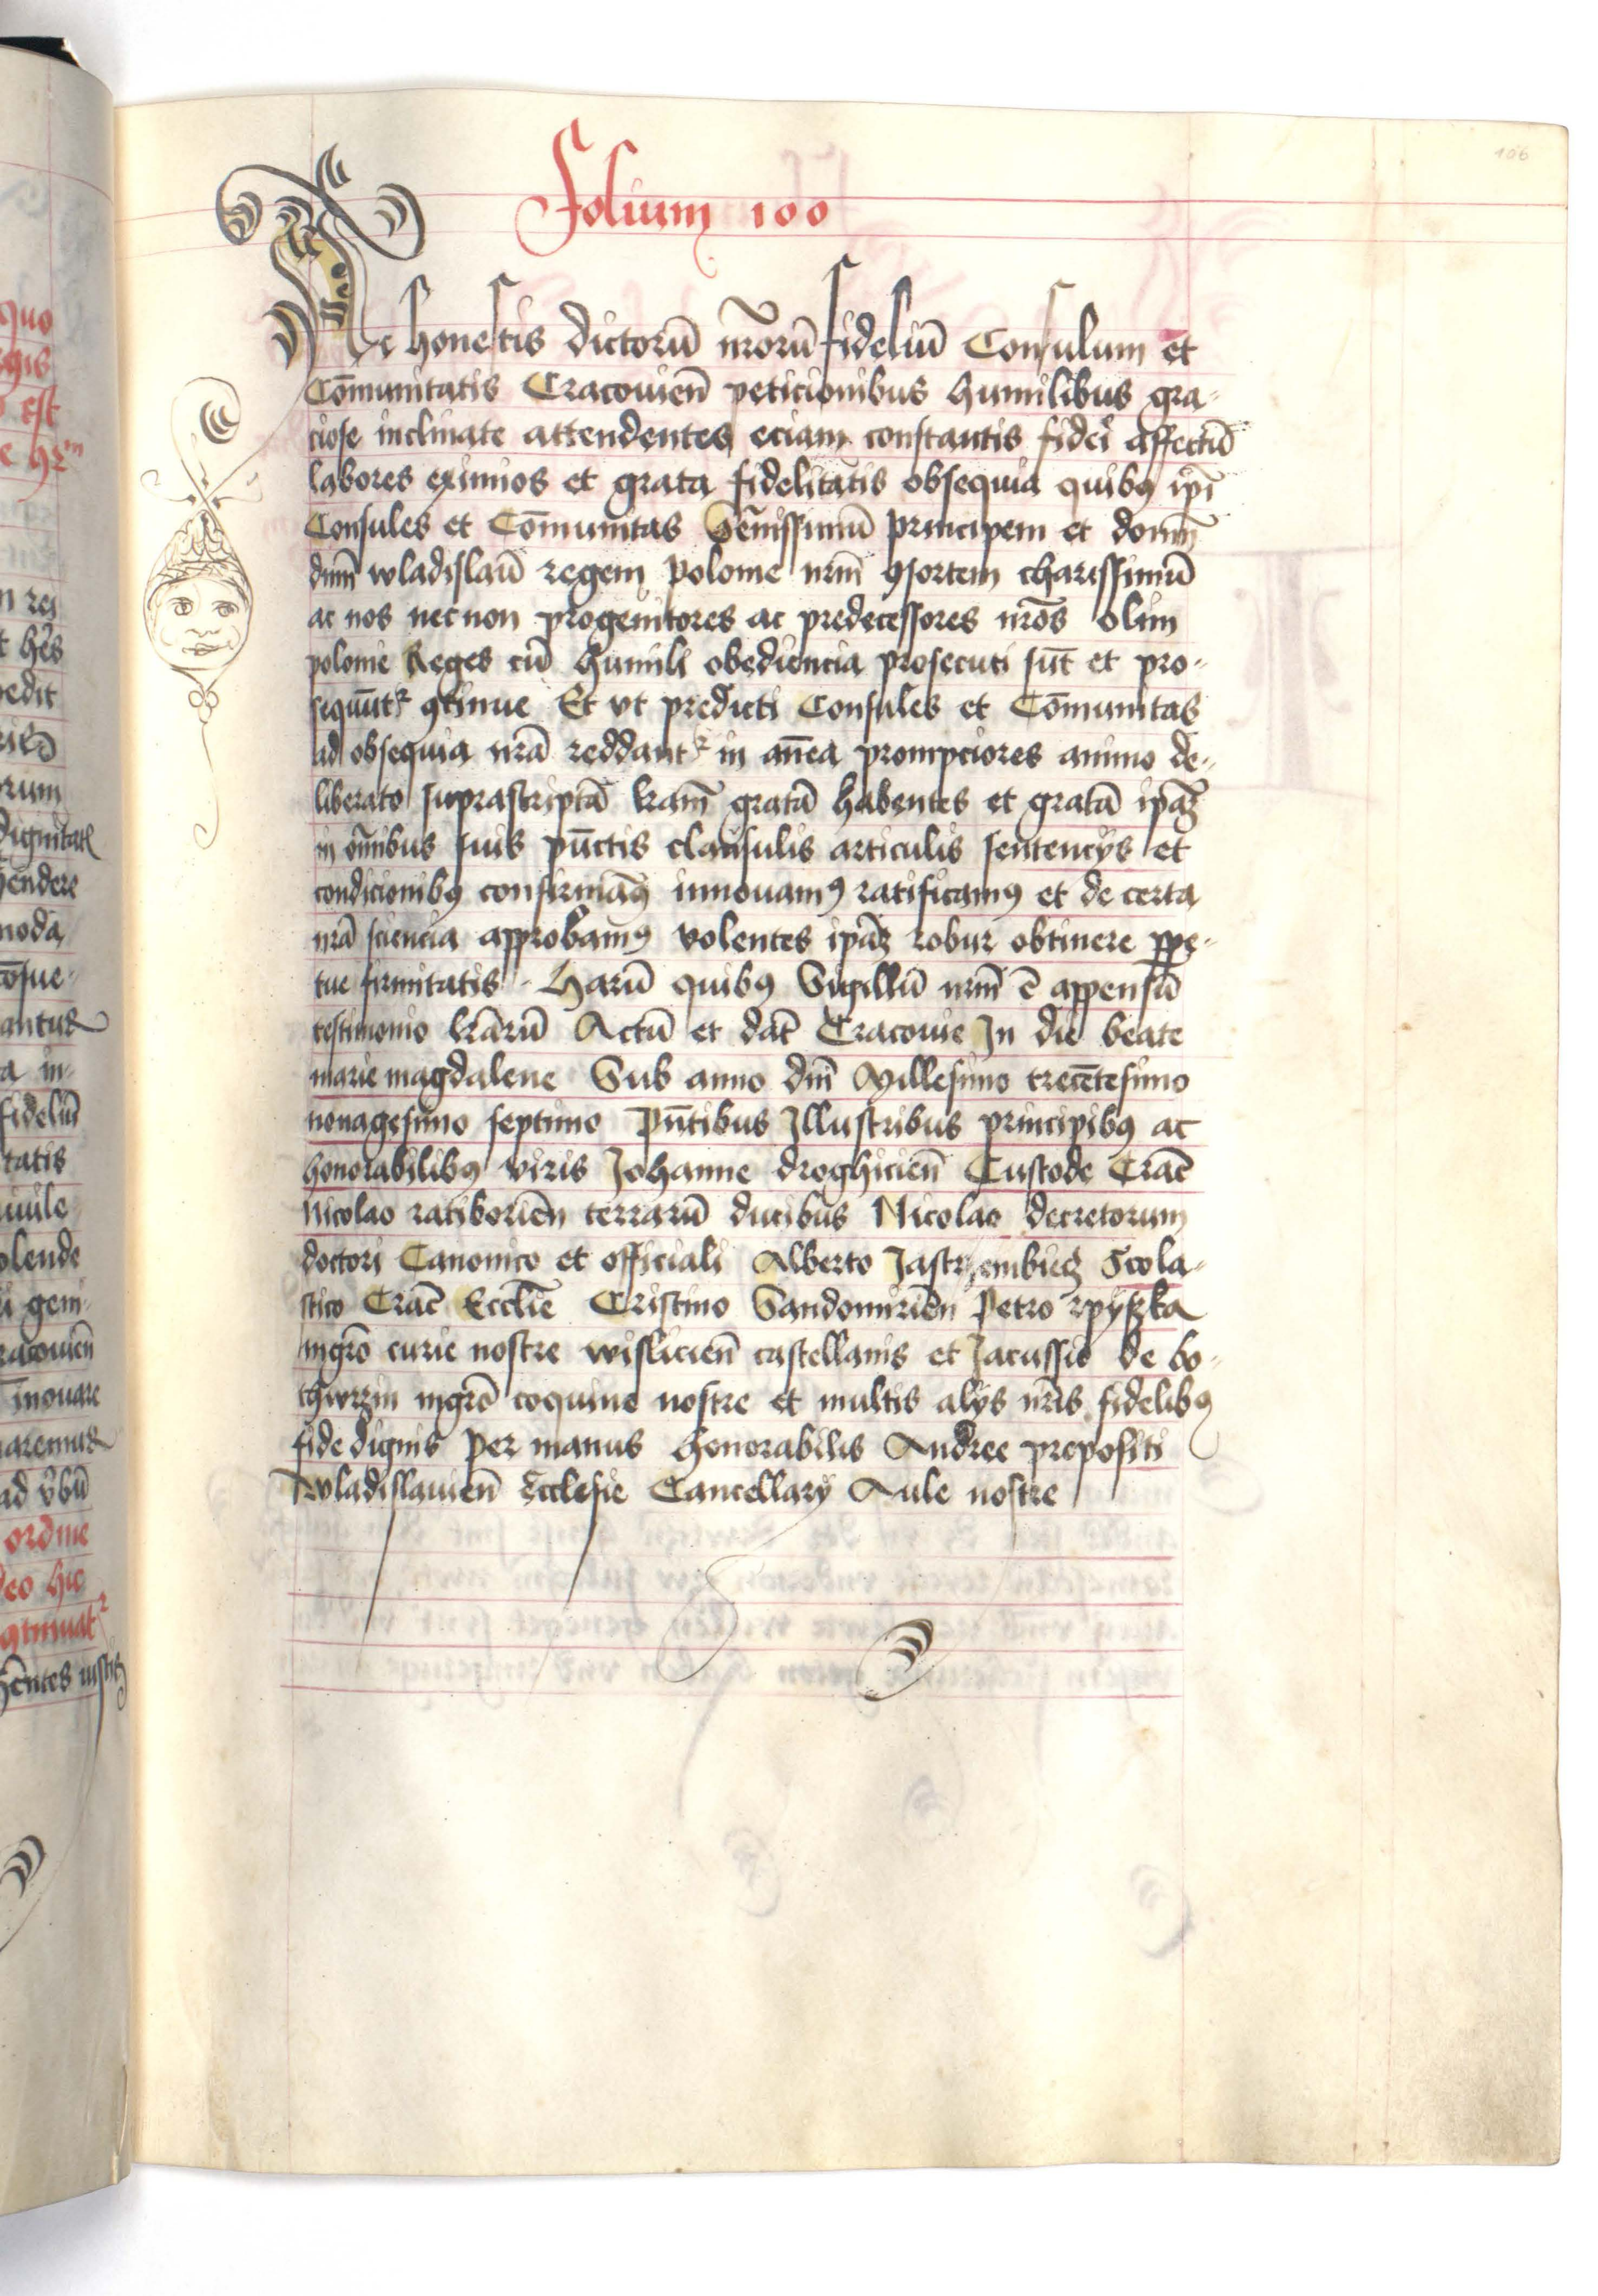 106
Folium 100
Ac honestis dictorū nr̄orū fideliū Consulum et
Cōmunitatis Cracouien̄ peticionibus humilibus gra-
ciose inclinate attendentes eciam constantis fidei affectū
labores eximios et grata fidelitatis obsequia quibꝯ ip̄i
Consules et Cōmunitas Ser̄nissimū principem et domin̄
dnm̄ wladislaū regem polonie nrm̄ ꝯsortem charissimū
ac nos necnon progenitores ac predecessores nrōs olim
polonie Reges cū humili obediencia prosecuti sūt et pro-
sequūtr ꝯtinue Et vt predicti Consules et Cōmunitas
ad obsequia nrā reddantr in an̄tea prompciores animo de-
liberato suprascriptā lrām gratā habentes et gratā ipāꝫ
in om̄ibus suis pūctis clausulis articulis sentencÿs et
condicionibꝯ confirmāꝯ innouamꝯ ratificamꝯ et de certa
nrā sciencia approbamꝯ volentes ipāꝫ robur obtinere ꝑpe-
tue firmitatis Harū quibꝯ Sigillū nrm̄ ē appensū
testimonio lrārū Actū et dat̄ Cracouie In die beate
marie magdalene Sub anno dn̄i Millesimo trecētesimo
nonagesimo septimo Pn̄tibus Illustribus principibꝯ ac
honorabilibꝯ viris Johanne droghicien̄ Custode Crac̄
Nicolao ratiborien̄ terrarū ducibus Nicolao decretorum
doctori Canonico et officiali Alberto Jastrzembiecz Scola-
stico Crac̄ Eccliē Cristino Sandomirien̄ Petro rpyszka
mgrō curie nostre wislicien̄ castellanis et Jacussio de bo-
thurzin mgrō coquine nostre et multis alÿs nrīs fidelibꝯ
fide dignis Per manus honorabilis Andree prepositi
wladislauien̄ Ecclesie Cancellarÿ Aule nostre